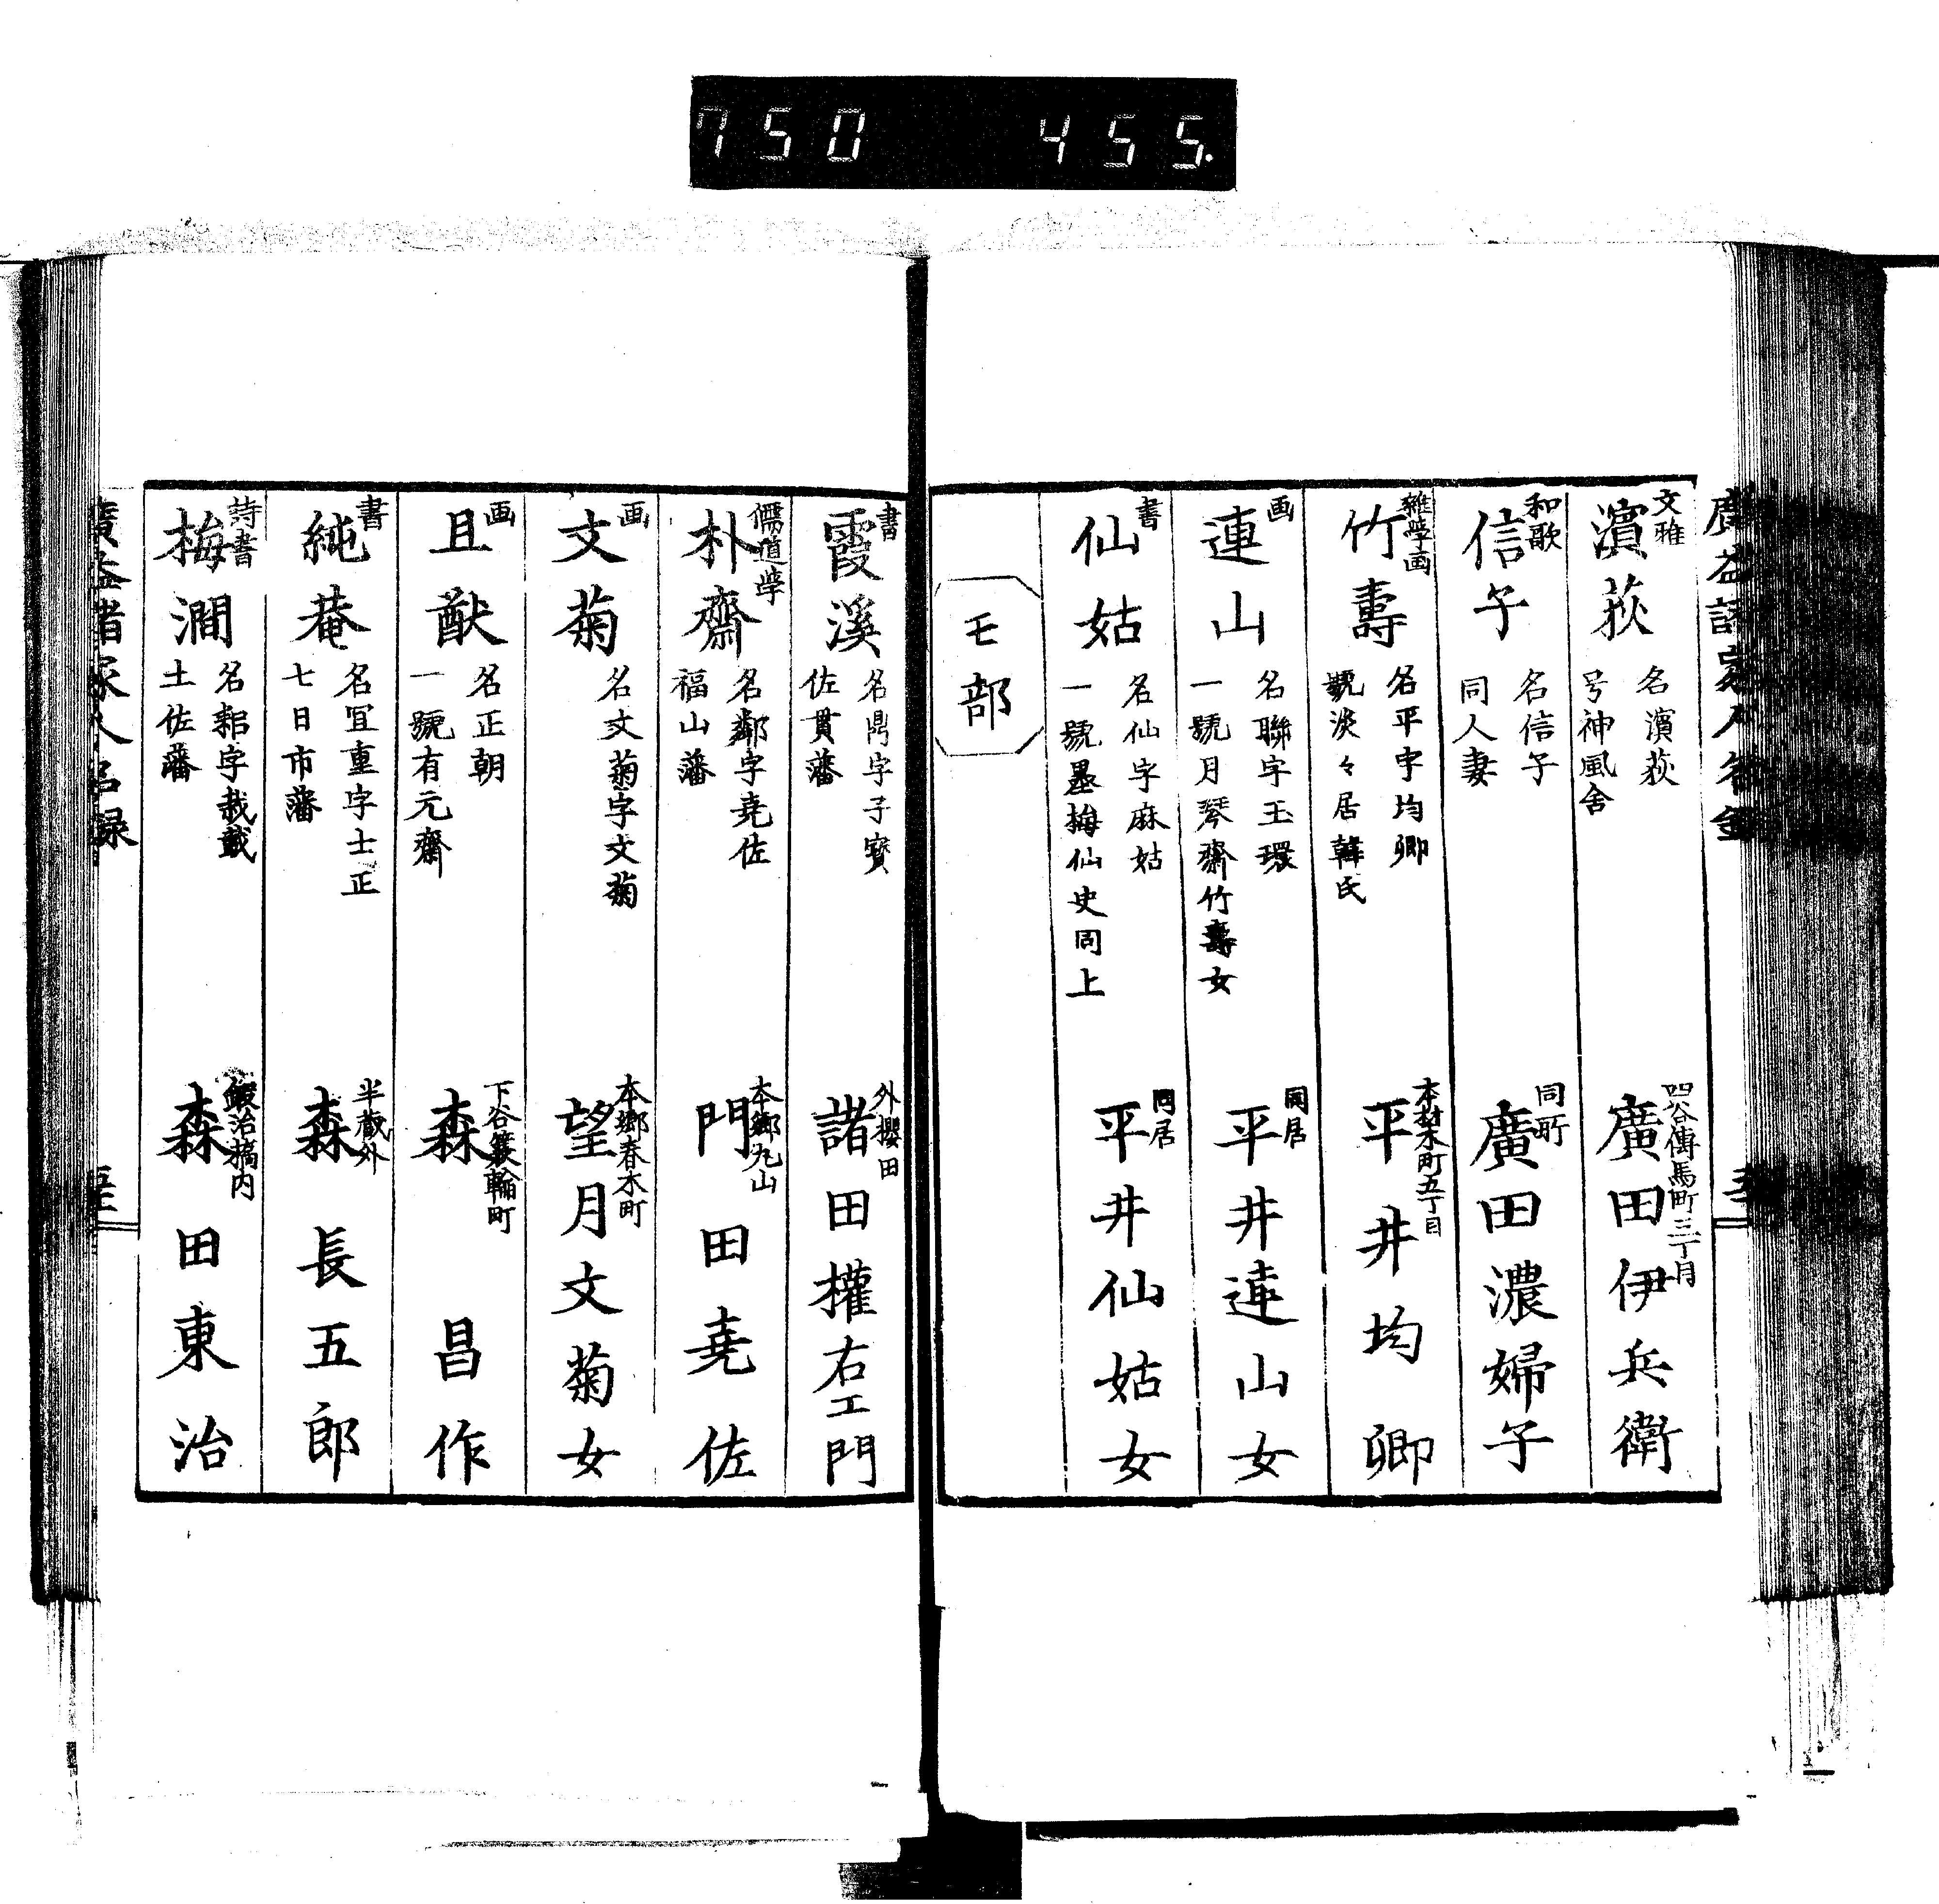 750 455.
文雅
濱荻
名濱荻
号神風舎
四谷傳馬町三丁月
廣田伊兵衛
和歌
信子
名信子
同人妻
同町
廣田濃婦子
雜學画
竹壽
名平字均卿
號淡々居韓氏
本材木町五丁目
平井均卿
画
連山
名聯字玉環
一號月琴齋竹壽女
同居
平井連山女
書
仙姑
名仙字麻姑
一號墨梅仙史同上
同居
平井仙姑女
モ部
書
霞溪
名鼎字子寳
佐貫藩
外櫻田
諸田權右エ門
儒道學
朴齋
名鄰字堯佐
福山藩
本郷丸山
門田堯佐
画
文菊
名文菊字文菊
本郷春木町
望月文菊女
画
且猷
名正朝
一號有元齋
下谷簑輪町
森昌作
書
純菴
名宜重字士正
七日市藩
半蔵外
森長五郎
詩書
梅澗
名耜字哉載
土佐藩
鍜治橋内
森田東治
廣益諸家人名録